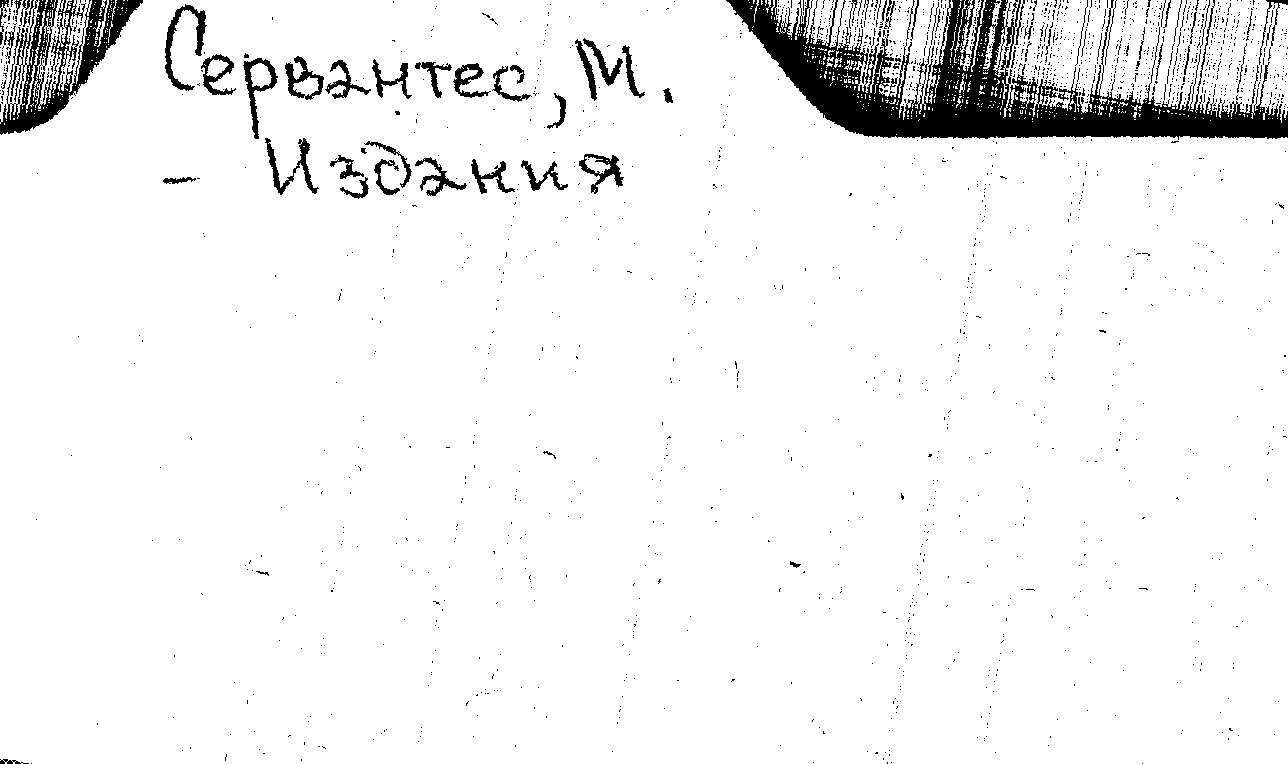 Сервантес, М.
- Издания